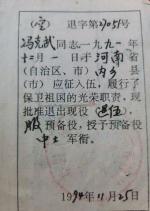 (空) 退字第27051号
冯克武同志一九九一年
十二月一日于河南省
(自治区、市)内乡县
(市)应征入伍，履行了
保卫祖国的光荣职责。现
批准退出现役 退伍.
服预备役，授予预备役
中士军衔。
1994年11月25日